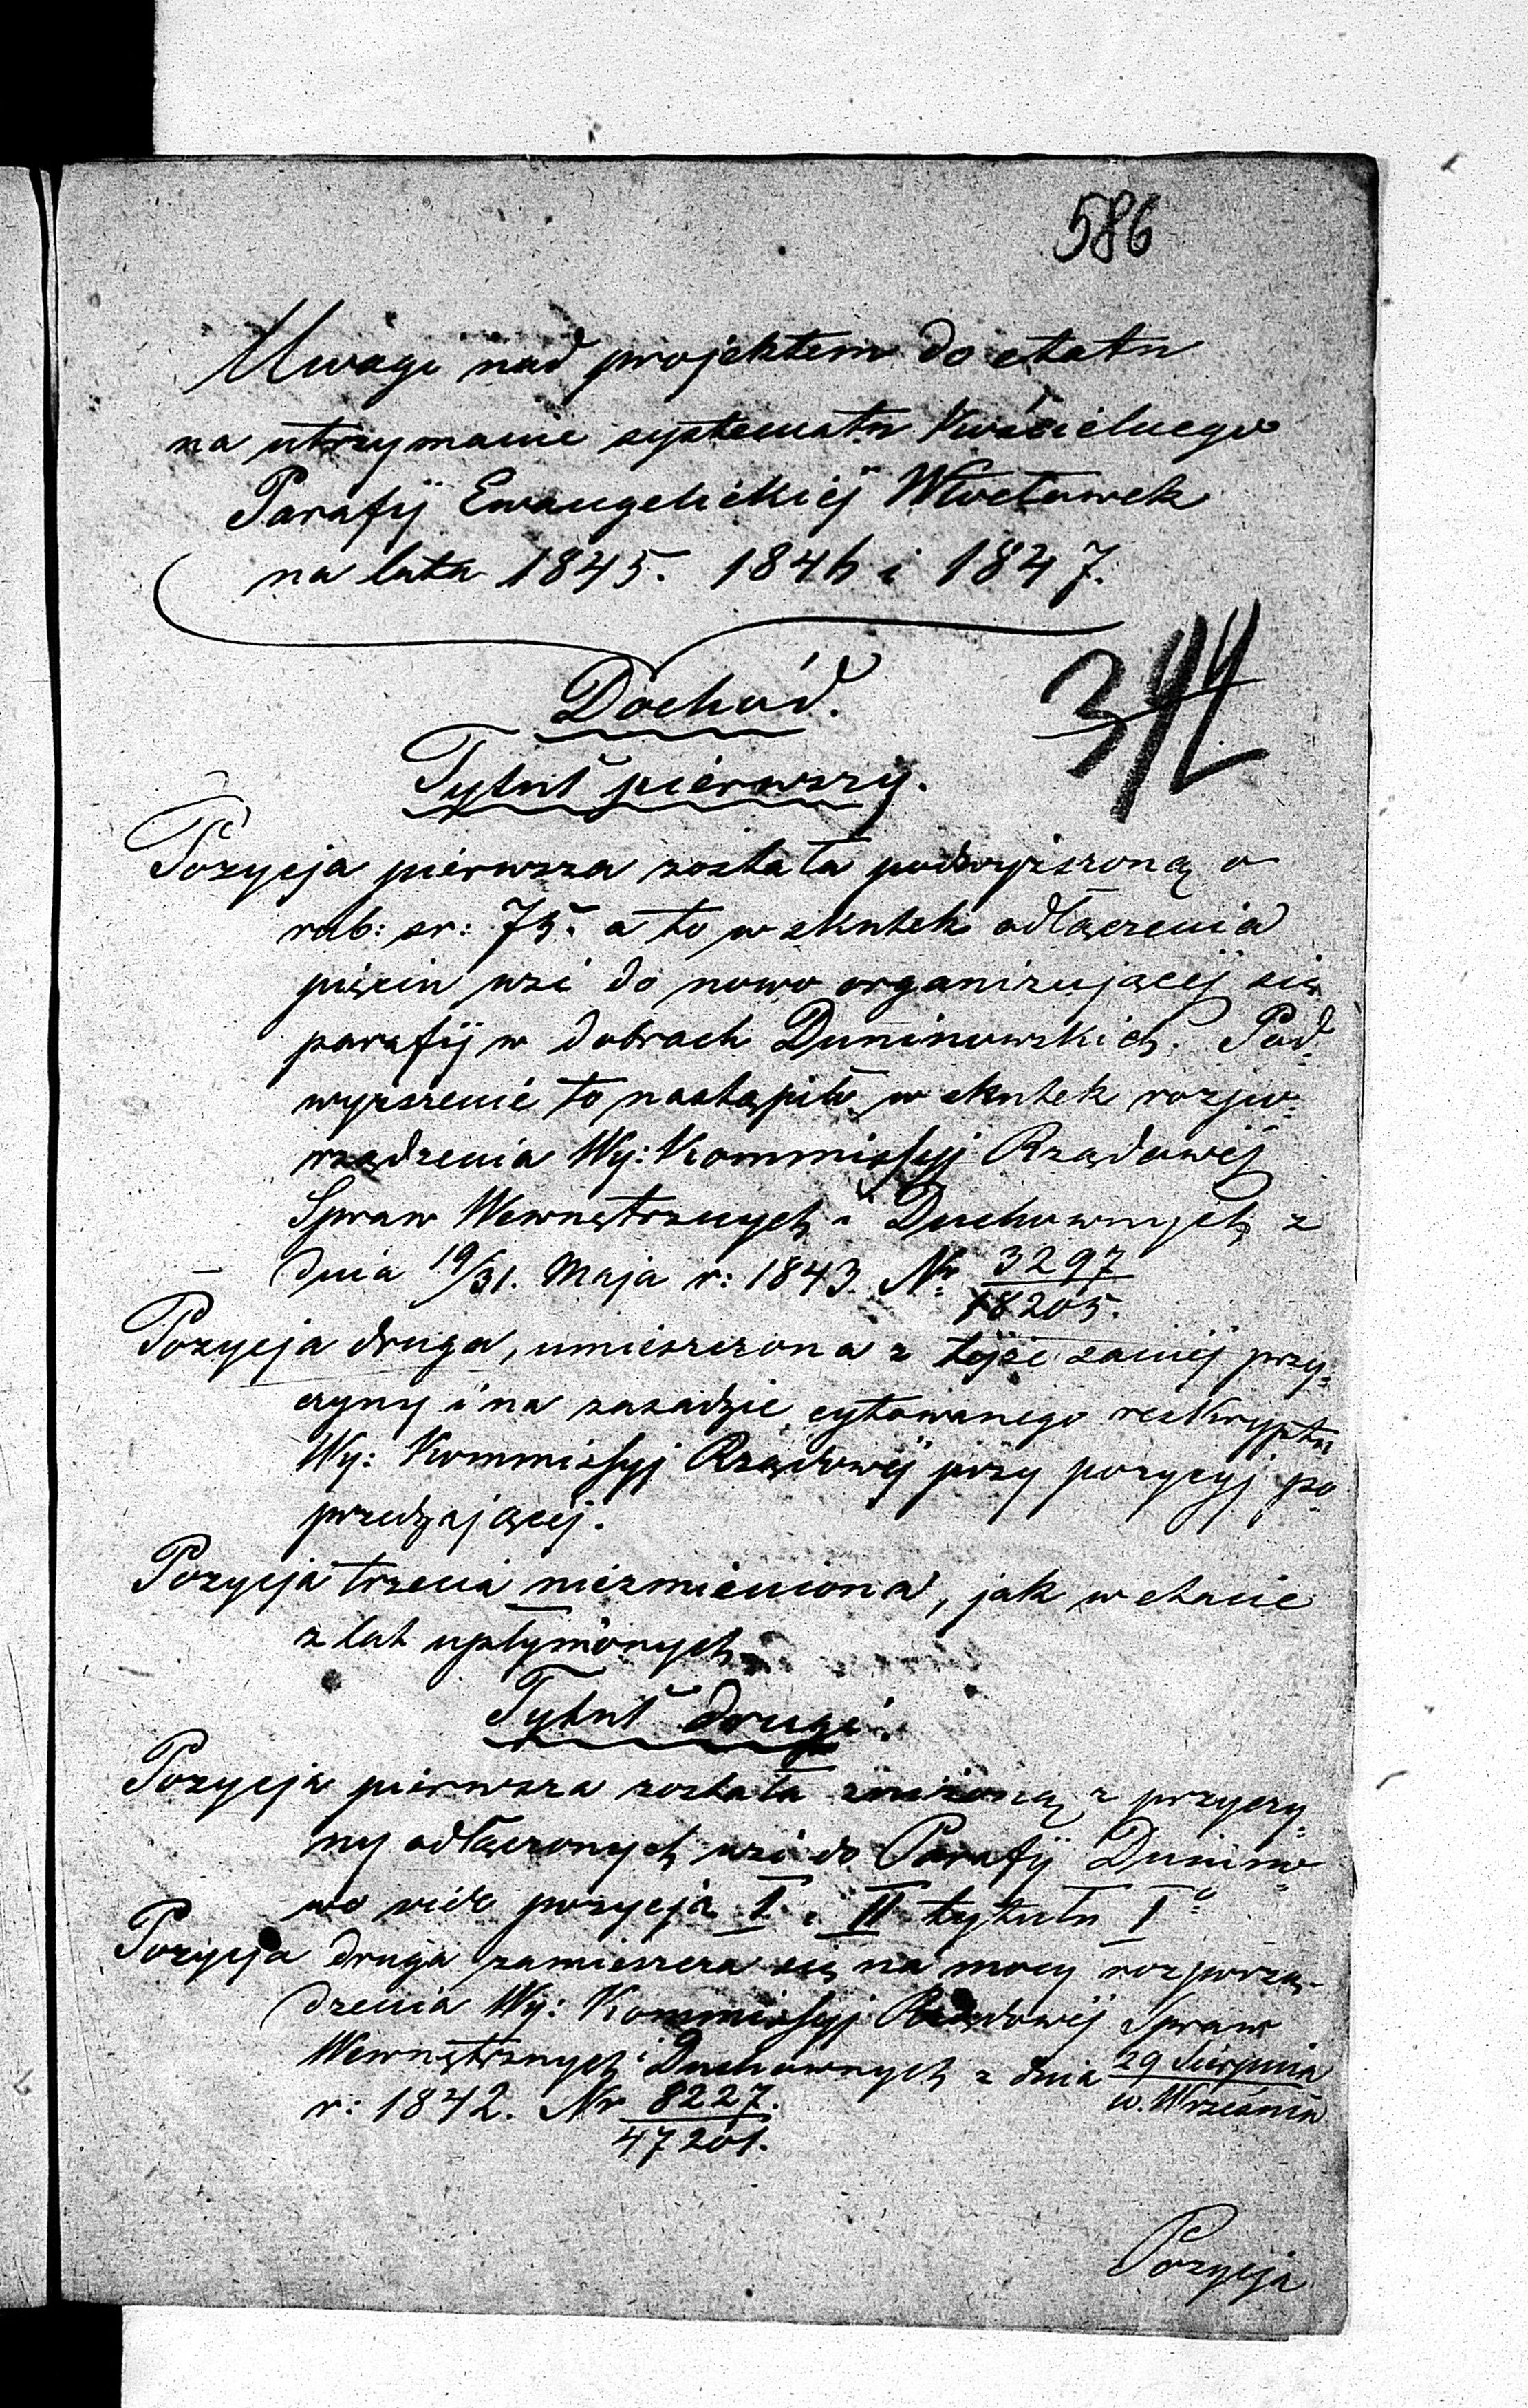 586
Uwagi nad projektem do etatu
na utrzymanie systematu Kościelnego
Parafij Ewangelickiéj Włocławek
na lata 1845. 1846 i 1847.
Dochód.
Tytuł piérwszy.
Pozycja piérwsza została podwyższoną o
rub: sr: 75. a to w skutek odłączenia
pięciu wsi do nowo organizującéj się
parafij w dobrach Duninowskich. Pod=
wyższenie to nastąpiło w skutek rozpo=
rządzenia Wy: Kommissyj Rządowéj
Spraw Wewnętrznych i Duchownych z
dnia 19/31. Maja r: 1843. Nr 3297
18205.
Pozycja druga, umieszczona z téjże saméj przy=
czyny i na zasadzie cytowanego reskryptu
Wy: Kommissyj Rządowéj przy pozycyj po=
przedzającéj.
Pozycja trzecia niezmieniona, jak w etacie
z lat upłynionych
Tytuł drugi.
Pozycja piérwsza została zniżoną z przyczy=
ny odłączonych wsi do Parafij Dunino=
wo vide pozycja I i II tytułu I°
Pozycja druga zamieszcza się na mocy rozporzą=
dzenia Wy: Kommissyj Rządowéj Spraw
Wewnętrznych i Duchownych z dnia 29 Sierpnia
10. Września
r: 1842. Nr 8227.
47201.
Pozycja